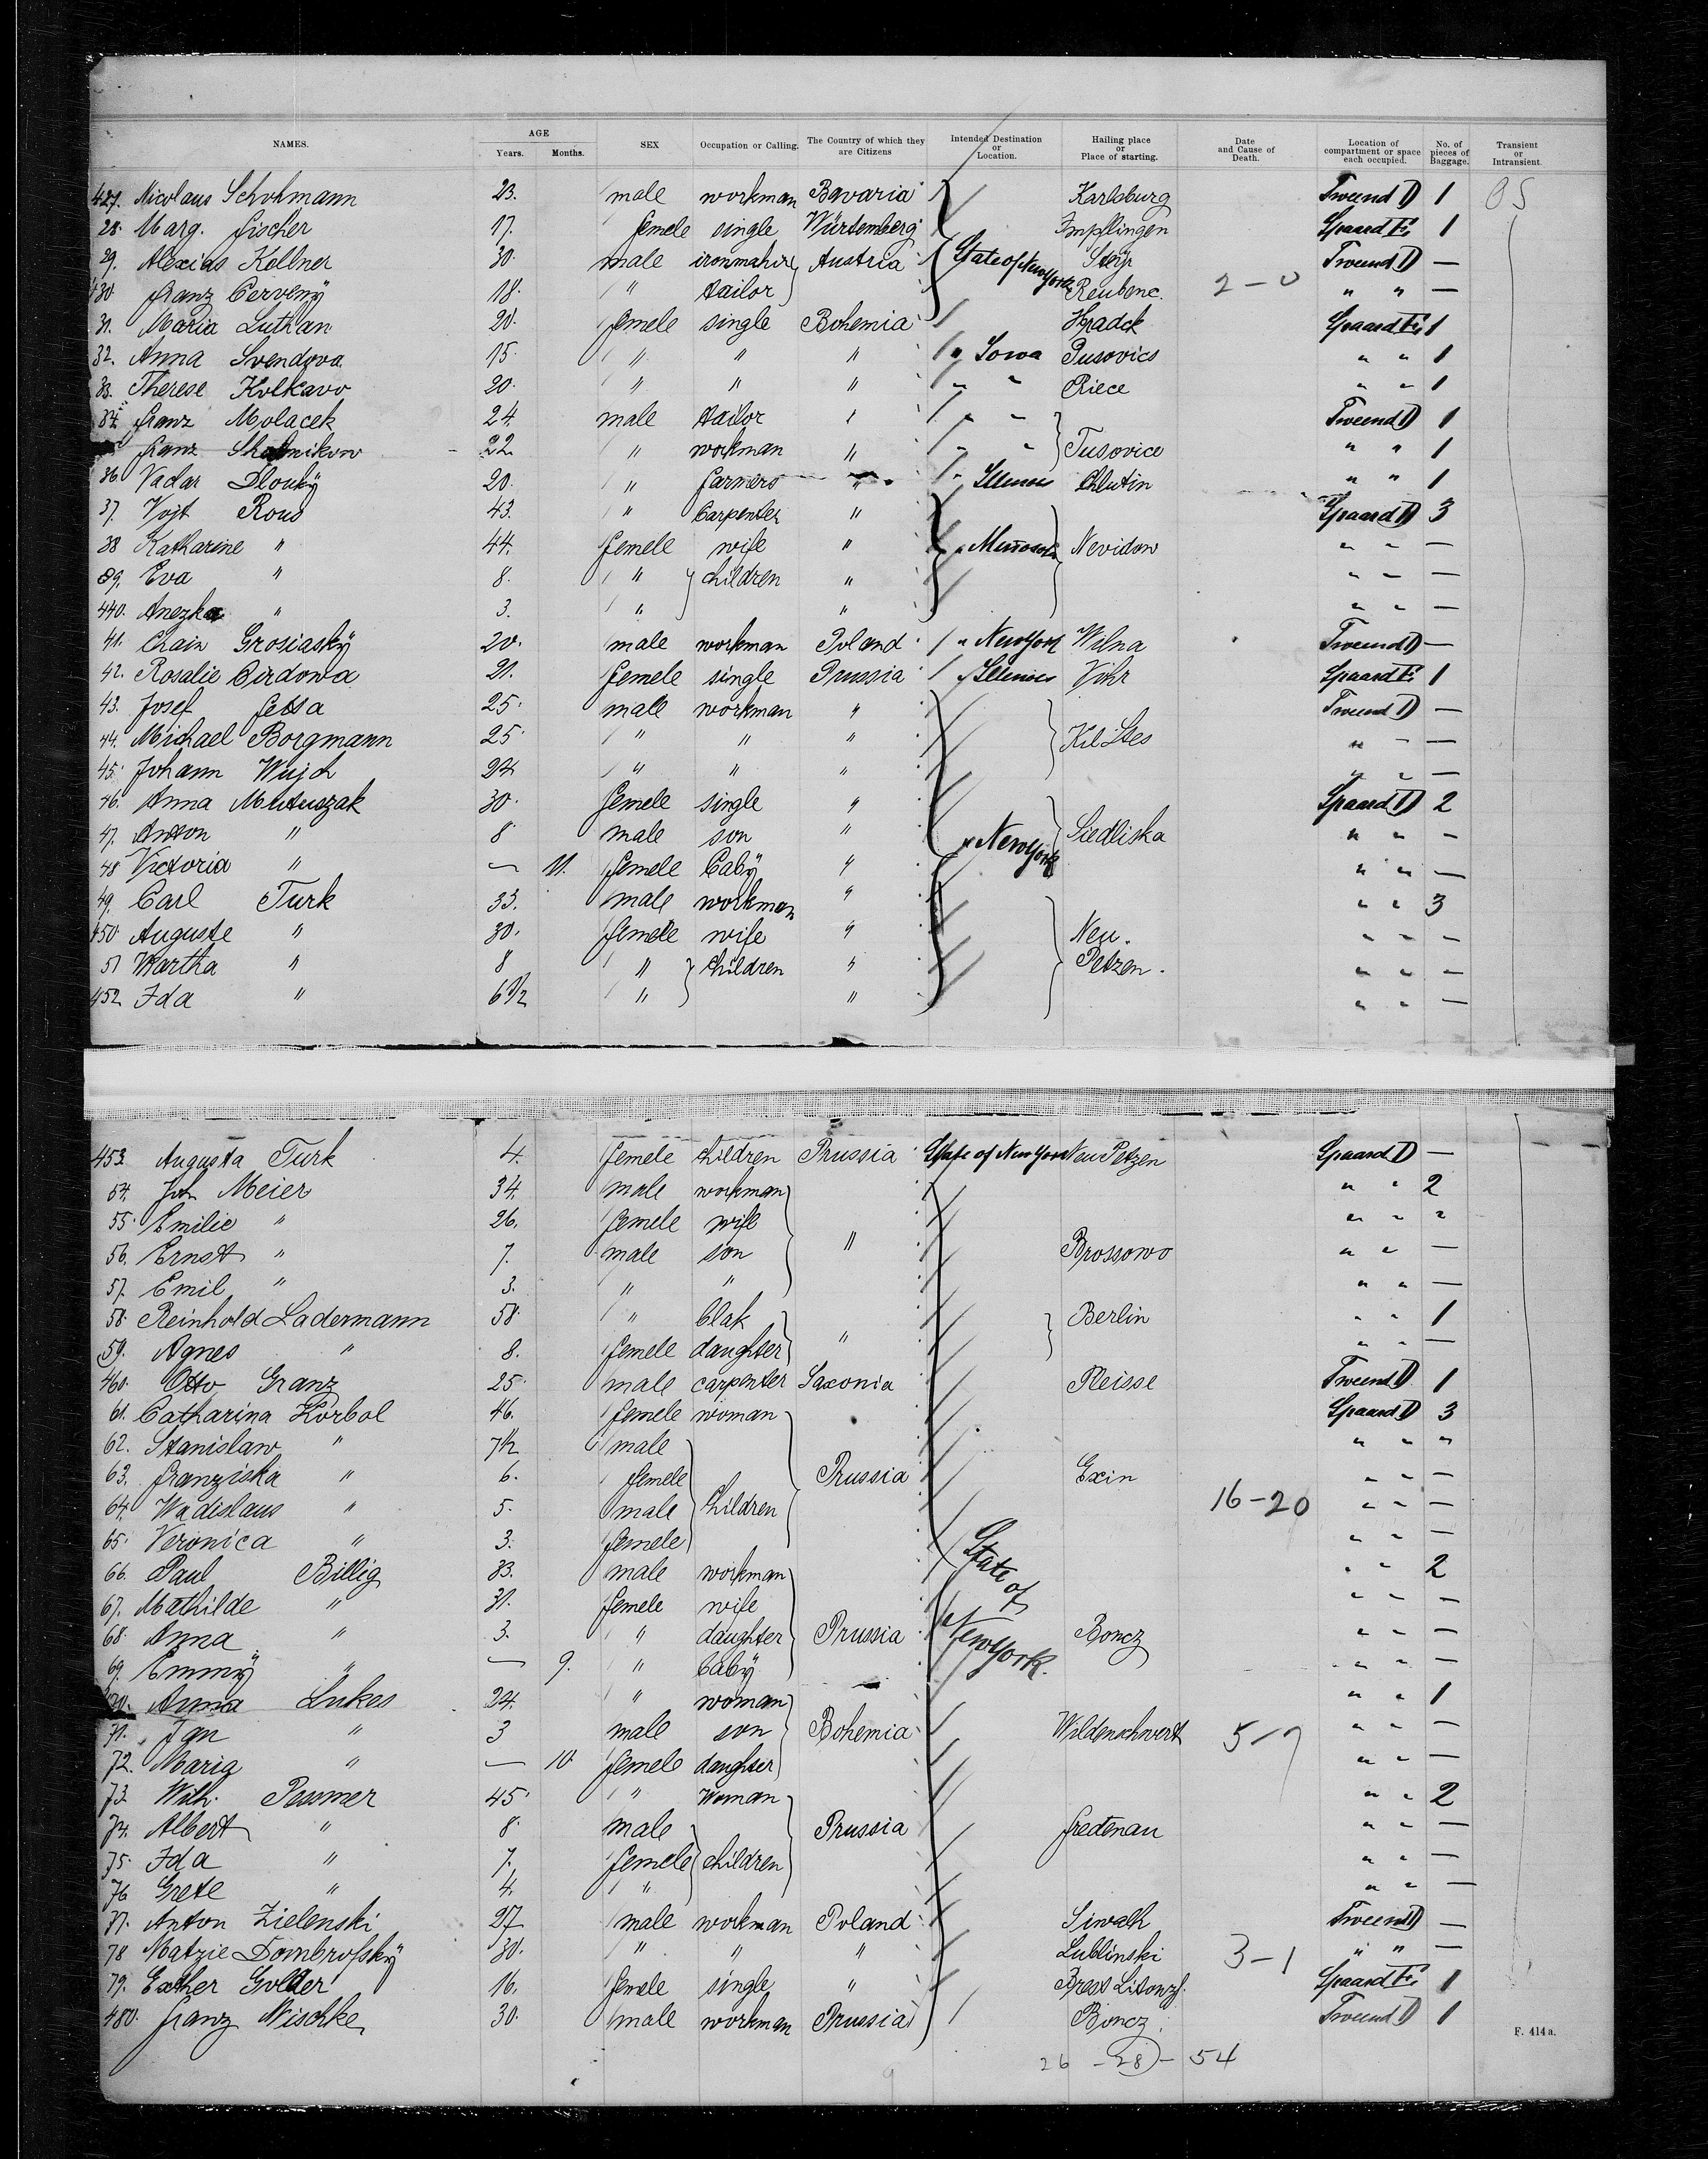 NAMES. AGE Years. Months. SEX Occupation or Calling. The Country of which they are Citizens Intended Destination or Location. Hailing place or Place of starting. Date and Cause of Death. Location of compartment or space each occupied. No. of pieces of Baggage. Transient or Intransient.
427. Nicolaus Schohmann 23. male workman Bavaria Karlsburg Tweend D 1
28. Marg. Fischer 17. femele single Würtemberg Impflingen Spaard E 1
29. Alexius Kellner 30. male Austria State of New York Steyr Tweend D —
430. Franz Cerveny 18. " tailor Reubenc. 2-0 " " —
31. Maria Luthan 20. femele single Bohemia Hradek Spaard E 1
32. Anna Svendova 15. " " " " Iowa Pusovics " " 1
33. Therese Kolkavo 20. " " " " " Riece " " 1
34. Franz Molacek 24 male tailor " " " Tweend D 1
Franz 22 " workman " " " Tusovice " " 1
36. Vadar Dlouhy 20. " farmers " " Illinois Chlutin " " 1
37. Vojt Rous 43. " Carpenter " Spaard D 3
38 Katharine " 44. femele wife " " Minesota Nevidow " " —
39. Eva " 8. " children " " " —
440. Anezka " 3. " " " " —
41. Chain Grosiasky 20. male workman Poland " New York Wilna Tweend D —
42. Rosalie Cirdowa 21. femele single Prussia " Illinois Vohr Spaard E 1
43. Josef 25. male workman " Tweend D —
44. Michael Borgmann 25. " " " " " —
45. Johann Wujch 24 " " " " " —
46. Anna Mutuszak 30. femele single " Spaard D 2
47. Anton " 8 male son " " New York Siedliska " " —
48 Victoria " — 11. femele baby " " " —
49. Carl Turk 33. male workman " " " 3
450. Auguste " 30. femele wife " Neu. " " —
51 Martha " 8 " children " Petzen. " " —
452 Ida " 6 1/2 " " " " —
453 Augusta Turk 4. femele children Prussia State of New York Neu Petzen Spaard D —
54. Joh Meier 34. male workman " " 2
55. Emilie " 26. femele wife " " "
56. Ernst " 7. male son " Brossowo " " —
57. Emil " 3. " " " " —
58. Reinhold Ladermann 58. " Clak Berlin " " 1
59. Agnes " 8. femele daughter " " " —
460. Otto Granz 25 male carpenter Saxonia Pleisse Tweend D 1
61. Catharina Korbal 46. femele woman Spaard D 3
62. Stanislaw " 7 1/2 male " " "
63. Franziska " 6. femele Prussia Exin " " —
64. Wadislaus " 5. male Children 16-20 " " —
65. Veronica " 3. femele " " —
66. Paul Billig 33. male workman State of " " 2
67. Mathilde " 31. femele wife " " —
68. Anna " 3. " daughter Prussia New York. Boncz " " —
69. Emmy " — 9. " baby " " —
Anna Lukes 24. " woman " " 1
71. Jan " 3 male son Bohemia Wildenschwert " " —
72. Maria " — 10 femele daughter " " —
73. Wilh. Pessmer 45. " Woman " " 2
74. Albert " 8. male Prussia Fredenau " " —
75. Ida " 7. femele children " " —
76 Grete " 4. " " " —
77. Anton Zielenski 27 male workman Poland Siwalk Tweend D —
78 Matzie Dombrofsky 30. " " " Lublinski 3-1 " " —
79. Esther Golder 16. femele single " Spaard E 1
480. Franz Nischke 30. male workman Prussia Boncz Tweend D 1
26 - 28 - 54
F. 414 a.